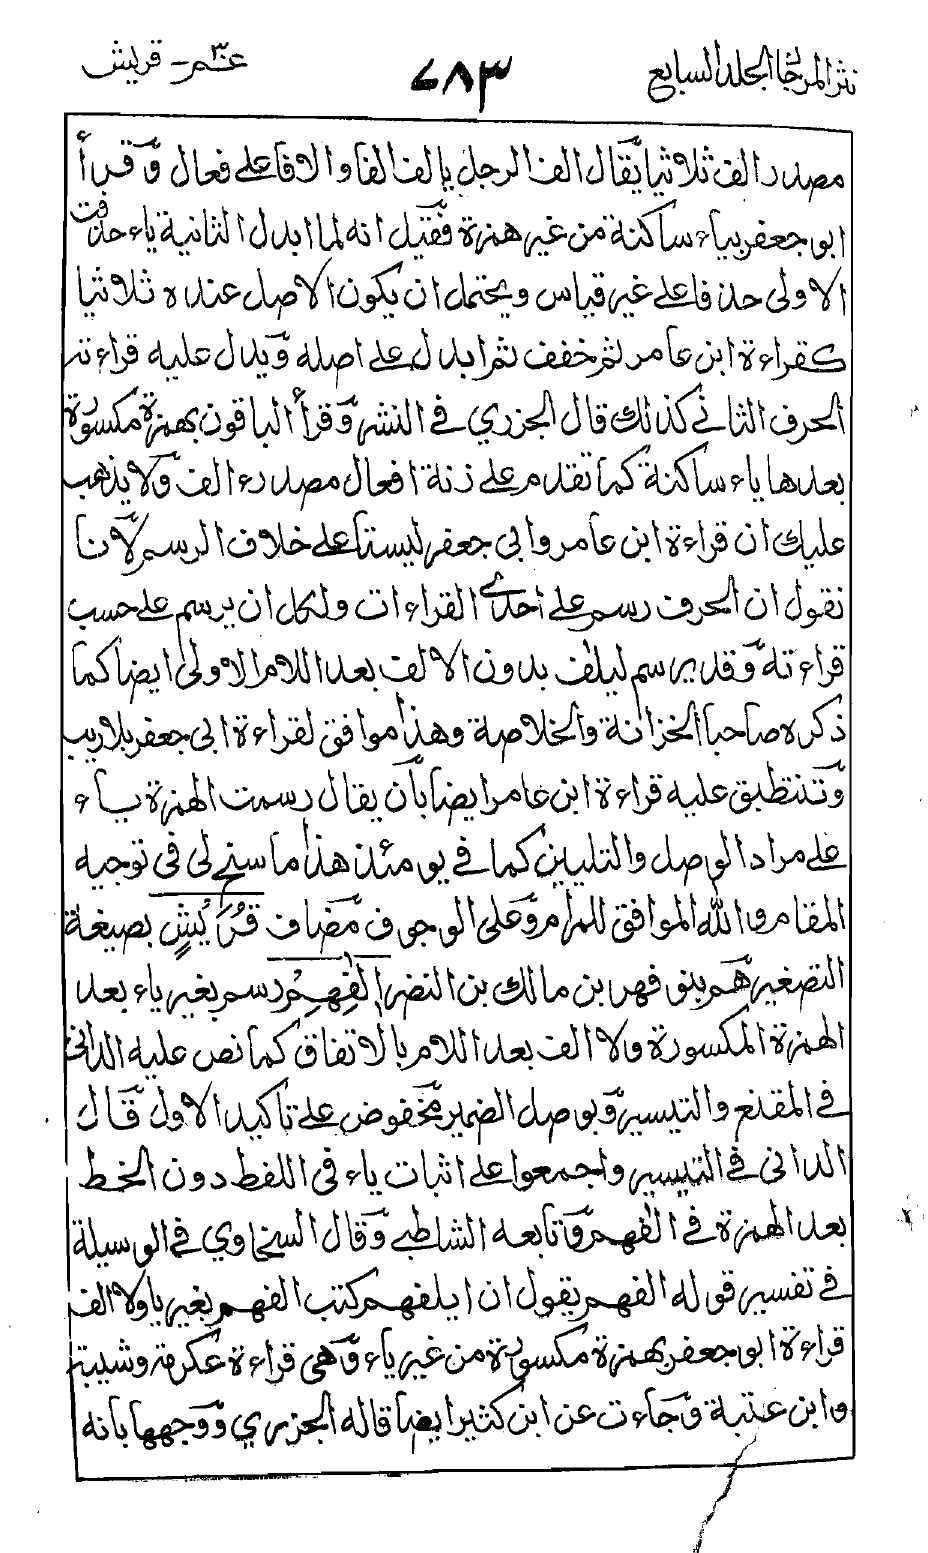 نثر المرجان المجلد السابع
٦٨٣
عمّ٣۰ - قريش
مصدر الف ثلاثيا يقال الف الرجل يالف الفا والافا على فعال وقرأ
ابو جعفر بياء ساكنة من غير همزة فقيل انه لما ابدل الثانية ياء حذفت
الاولى حذفا على غير قياس ويحتمل ان يكون الاصل عنده ثلاثيا
كقراءة ابن عامر ثم خفف ثم ابدل على اصله ويدل عليه قراءته
الحرف الثاني كذلك قال الجزري في النشر وقرأ الباقون بهمزة مكسورة
بعدها ياء ساكنة كما تقدم على زنة افعال مصدر ءالف ولا يذهب
عليك ان قراءة ابن عامر وابي جعفر ليستا على خلاف الرسم لانا
نقول ان الحرف رسم على احدى القراءات ولكل ان يرسم على حسب
قراءته وقد يرسم ليلف بدون الالف بعد اللام الاولى ايضا كما
ذكره صاحبا الخزانة والخلاصة وهذا موافق لقراءة ابي جعفر بلا ريب
وتنطبق عليه قراءة ابن عامر ايضا بأن يقال رسمت الهمزة ياء
على مراد الوصل والتليين كما في يومئذ هذا ما سنح لي في توجيه
المقام والله الموافق للمرام وعلى الوجوه مضاف قُرَيْشٍ بصيغة
التصغير هم بنو فهر بن مالك بن النضر الٰفِهِمْ رسم بغير ياء بعد
الهمزة المكسورة ولا الف بعد اللام بالاتفاق كما نص عليه الداني
في المقنع والتيسير وبوصل الضمير مخفوض على تاكيد الاول قال
الداني في التيسير واجمعوا على اثبات ياء في اللفظ دون الخط
بعد الهمزة في الٰفهم وتابعه الشاطبي وقال السخاوي في الوسيلة
في تفسير قوله الفهم يقول ان ايلفهم كتب الفهم بغير يا ولا الف
قراءة ابو جعفر بهمزة مكسورة من غير ياء وهي قراءة عكرمة وشيبة
وابن عتبة وجاءت عن ابن كثير ايضا قاله الجزري ووجهها بأنه